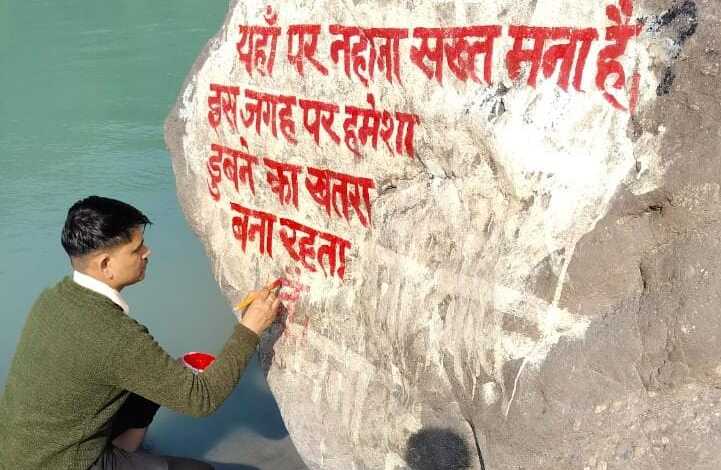 यहाँ पर नहाना सख्त मना है।
इस जगह पर हमेशा
डुबने का खतरा
बना रहता